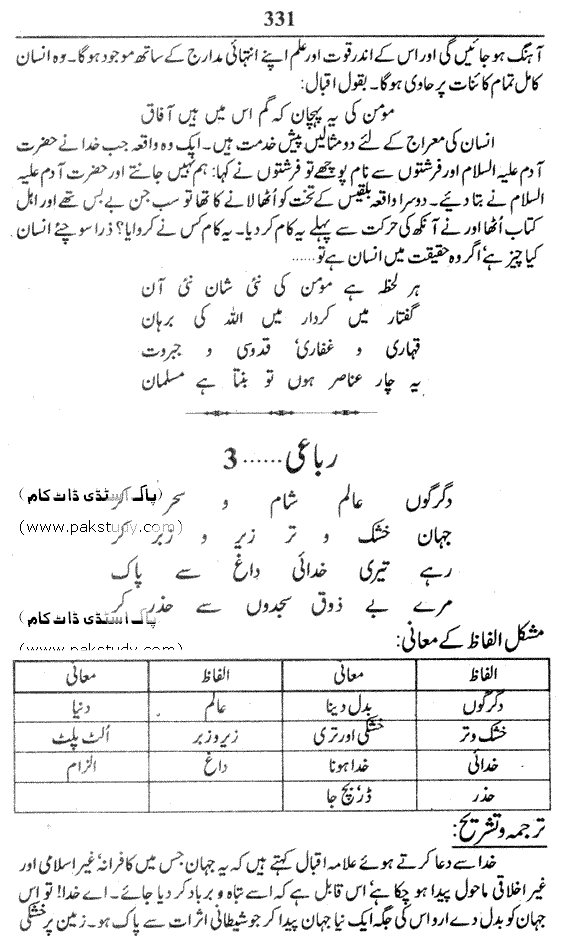 331
آہنگ ہو جائیں گی اور اس کے اندر قوت اور علم اپنے انتہائی مدارج کے ساتھ موجود ہو گا۔ وہ انسان
کامل تمام کائنات پر حاوی ہو گا۔ بقول اقبال:
مومن کی یہ پہچان کہ گم اس میں ہیں آفاق
انسان کی معراج کے لئے دو مثالیں پیش خدمت ہیں۔ ایک وہ واقعہ جب خدا نے حضرت
آدم علیہ السلام اور فرشتوں سے نام پوچھے تو فرشتوں نے کہا: ہم نہیں جانتے اور حضرت آدم علیہ
السلام نے بتا دیئے۔ دوسرا واقعہ بلقیس کے تخت کو اُٹھا لانے کا تھا تو سب جن بے بس تھے اور اہل
کتاب اُٹھا اور نے آنکھ کی حرکت سے پہلے یہ کام کر دیا۔ یہ کام کس نے کروایا؟ ذرا سوچئے انسان
کیا چیز ہے، اگر وہ حقیقت میں انسان ہے تو......
ہر لحظہ ہے مومن کی نئی شان نئی آن
گفتار میں کردار میں اللہ کی برہان
قہاری و غفاری، قدوسی و جبروت
یہ چار عناصر ہوں تو بنتا ہے مسلمان
رباعی......3
دگرگوں عالم شام و سحر کر
(پاک اسٹڈی ڈاٹ کام)
جہان خشک و تر زیر و زبر کر
(www.pakstudy.com)
رہے تیری خدائی داغ سے پاک
مرے بے ذوق سجدوں سے حذر کر
(پاک اسٹڈی ڈاٹ کام)
مشکل الفاظ کے معانی:
(www.pakstudy.com)
الفاظ معانی الفاظ معانی
دگرگوں بدل دینا عالم دنیا
خشک و تر خشکی اور تری زیر و زبر الٹ پلٹ
خدائی خدا ہونا داغ الزام
حذر ڈر، بچ جا
ترجمہ و تشریح:
خدا سے دعا کرتے ہوئے علامہ اقبال کہتے ہیں کہ یہ جہان جس میں کافرانہ، غیر اسلامی اور
غیر اخلاقی ماحول پیدا ہو چکا ہے، اس قابل ہے کہ اسے تباہ و برباد کر دیا جائے۔ اے خدا! تو اس
جہان کو بدل دے ارو اس کی جگہ ایک نیا جہان پیدا کر جو شیطانی اثرات سے پاک ہو۔ زمین پر خشکی